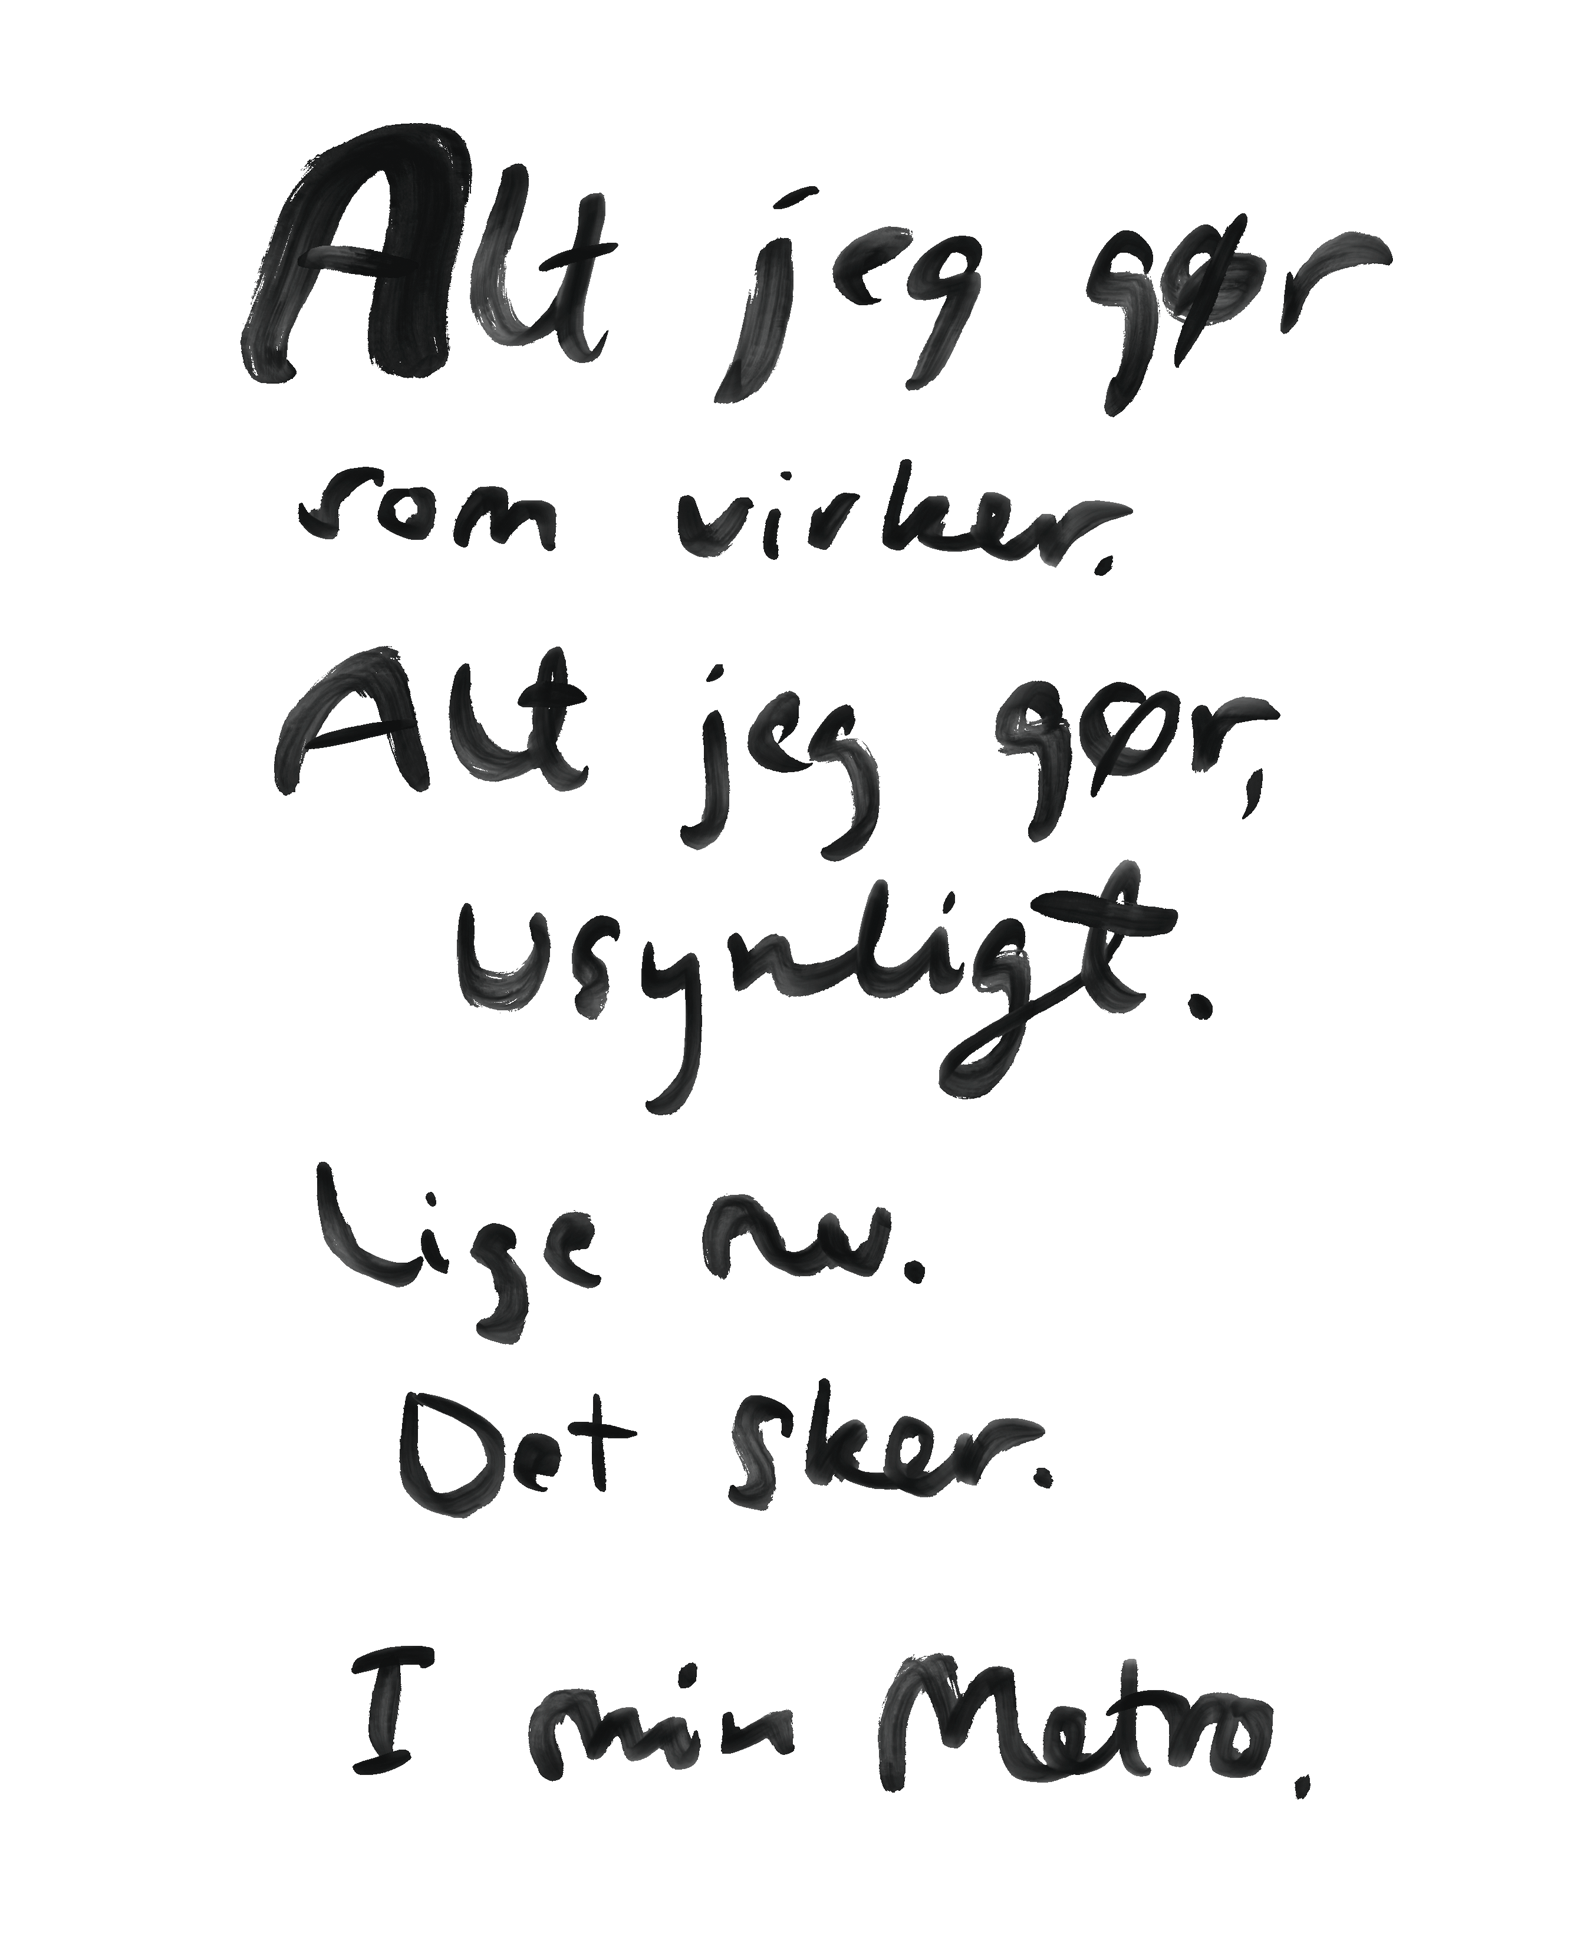 Alt jeg gør
som virker.
Alt jeg gør,
usynligt.
Lige nu.
Det sker.
I min Metro.